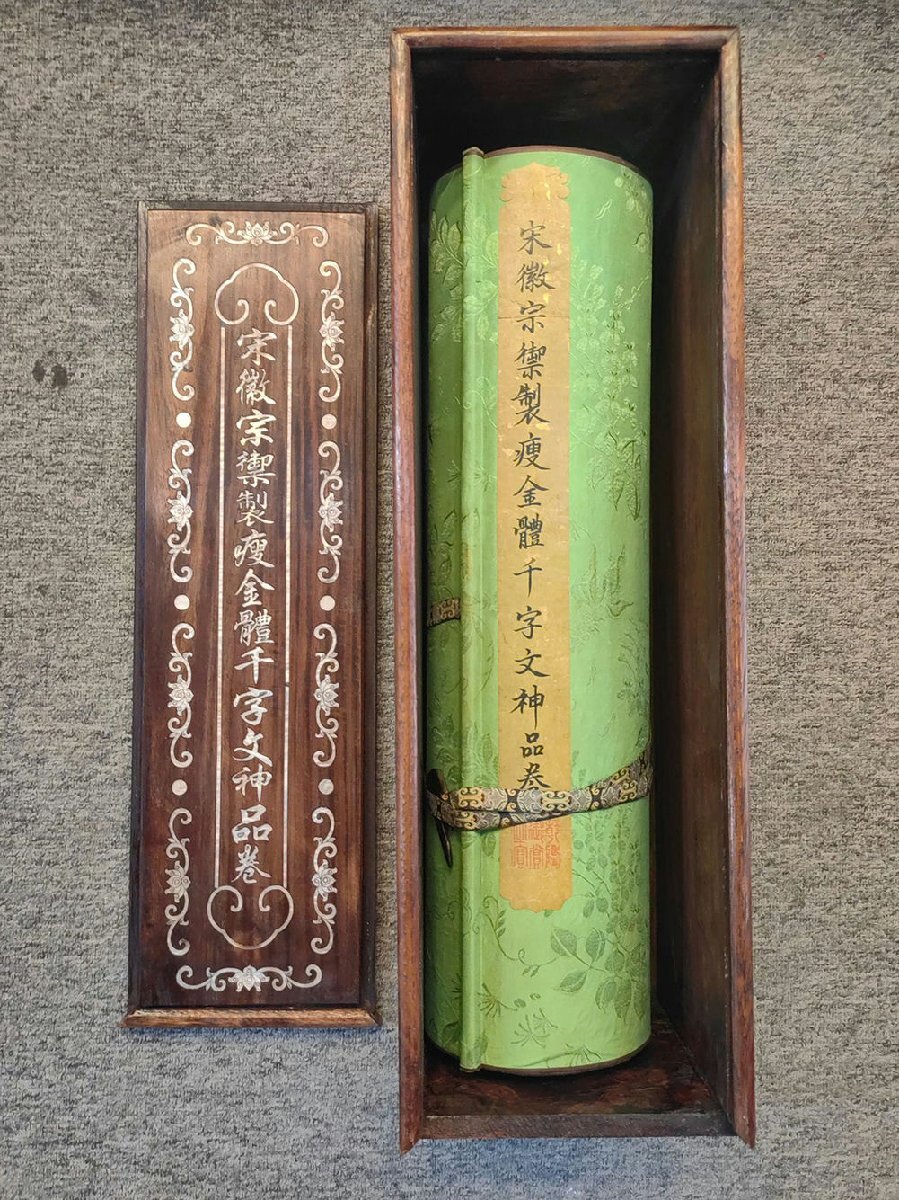 宋徽宗御製瘦金體千字文神品卷
宋徽宗御製瘦金體千字文神品卷